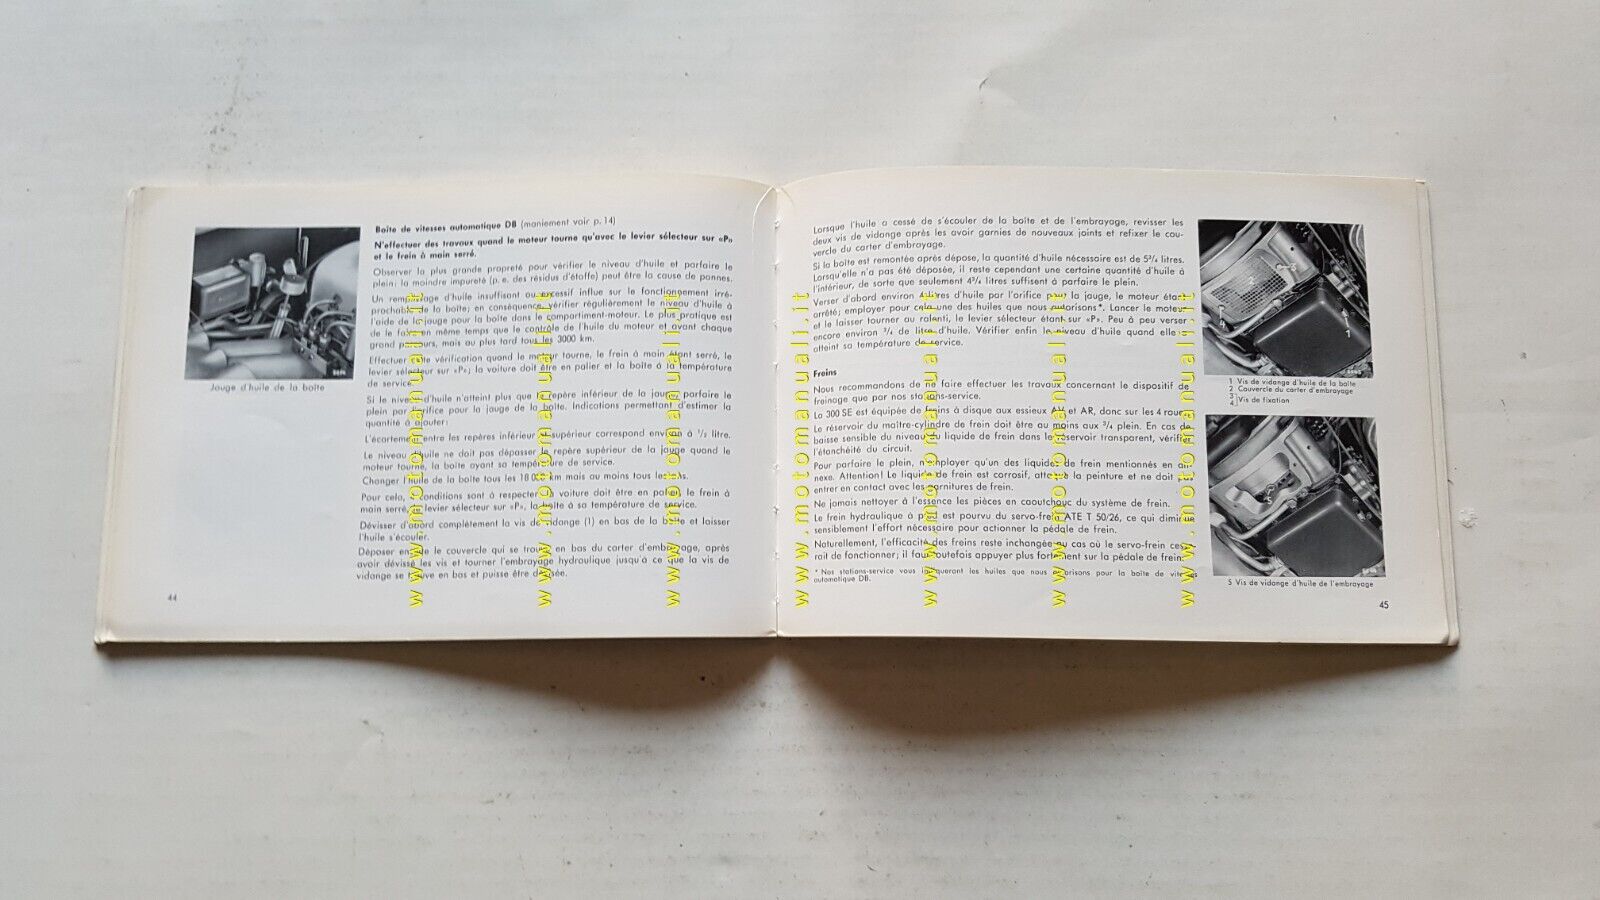 Boîte de vitesses automatique DB (maniement voir p. 14)
N'effectuer des travaux quand le moteur tourne qu'avec le levier sélecteur sur «P»
et le frein à main serré.
Observer la plus grande propreté pour vérifier le niveau d'huile et parfaire le
plein: la moindre impureté (p. e. des résidus d'étoffe) peut être la cause de pannes.
Un remplissage d'huile insuffisant ou excessif influe sur le fonctionnement irré-
prochable de la boîte; en conséquence, vérifier régulièrement le niveau d'huile à
l'aide de la jauge pour la boîte dans le compartiment-moteur. Le plus pratique est
de le faire en même temps que le contrôle de l'huile du moteur et avant chaque
grand parcours, mais au plus tard tous les 3000 km.
Effectuer cette vérification quand le moteur tourne, le frein à main étant serré, le
levier sélecteur sur «P»; la voiture doit être en palier et la boîte à la température
de service.
Si le niveau d'huile n'atteint plus que le repère inférieur de la jauge, parfaire le
plein par l'orifice pour la jauge de la boîte. Indications permettant d'estimer la
quantité à ajouter:
L'écartement entre les repères inférieur et supérieur correspond environ à 1/2 litre.
Le niveau d'huile ne doit pas dépasser le repère supérieur de la jauge quand le
moteur tourne, la boîte ayant sa température de service.
Changer l'huile de la boîte tous les 18 000 km mais au moins tous les ans.
Pour cela, conditions sont à respecter: la voiture doit être en palier, le frein à
main serré, le levier sélecteur sur «P», la boîte à sa température de service.
Dévisser d'abord complètement la vis de vidange (1) en bas de la boîte et laisser
l'huile s'écouler.
Déposer ensuite le couvercle qui se trouve en bas du carter d'embrayage, après
avoir dévissé les vis et tourner l'embrayage hydraulique jusqu'à ce que la vis de
vidange se trouve en bas et puisse être dévissée.
Jauge d'huile de la boîte
44
Lorsque l'huile a cessé de s'écouler de la boîte et de l'embrayage, revisser les
deux vis de vidange après les avoir garnies de nouveaux joints et refixer le cou-
vercle du carter d'embrayage.
Si la boîte est remontée après dépose, la quantité d'huile nécessaire est de 5 3/4 litres.
Lorsqu'elle n'a pas été déposée, il reste cependant une certaine quantité d'huile à
l'intérieur, de sorte que seulement 4 3/4 litres suffisent à parfaire le plein.
Verser d'abord environ 4 litres d'huile par l'orifice pour la jauge, le moteur étant
arrêté; employer pour cela une des huiles que nous autorisons*. Lancer le moteur
et le laisser tourner au ralenti, le levier sélecteur étant sur «P». Peu à peu verser
encore environ 3/4 de litre d'huile. Vérifier enfin le niveau d'huile quand elle a
atteint sa température de service.
Freins
Nous recommandons de ne faire effectuer les travaux concernant le dispositif de
freinage que par nos stations-service.
La 300 SE est équipée de freins à disque aux essieux AV et AR, donc sur les 4 roues.
Le réservoir du maître-cylindre de frein doit être au moins aux 3/4 plein. En cas de
baisse sensible du niveau du liquide de frein dans le réservoir transparent, vérifier
l'étanchéité du circuit.
Pour parfaire le plein, n'employer qu'un des liquides de frein mentionnés en an-
nexe. Attention! Le liquide de frein est corrosif, attaque la peinture et ne doit pas
entrer en contact avec les garnitures de freins.
Ne jamais nettoyer à l'essence les pièces en caoutchouc du système de frein.
Le frein hydraulique à pied est pourvu du servo-frein ATE T 50/26, ce qui diminue
sensiblement l'effort nécessaire pour actionner la pédale de frein.
Naturellement, l'efficacité des freins reste inchangée au cas où le servo-frein ces-
rait de fonctionner; il faut toutefois appuyer plus fortement sur la pédale de frein.
* Nos stations-service vous indiqueront les huiles que nous autorisons pour la boîte de vitesses
automatique DB.
1 Vis de vidange d'huile de la boîte
2 Couvercle du carter d'embrayage
3
4 Vis de fixation
5 Vis de vidange d'huile de l'embrayage
45
www.motomanuali.it
www.motomanuali.it
www.motomanuali.it
www.motomanuali.it
www.motomanuali.it
www.motomanuali.it
www.motomanuali.it